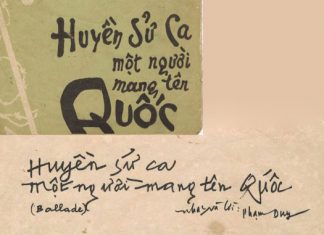 Huyền Sử Ca
một người
mang tên
QUỐC
Huyền sử ca
một người mang tên Quốc
(Ballade)
nhạc và lời : Phạm Duy